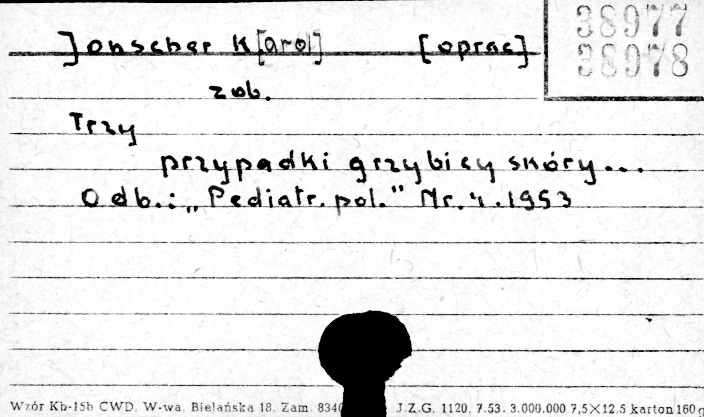 38977
38978
Jonscher K[arol] [oprac]
zob.
Trzy
przypadki grzybicy skóry...
Odb.: „Pediatr. pol." Nr. 4. 1953
Wzór Kb-15b CWD, W-wa, Bielańska 18. Zam. J.Z.G. 1120. 7.53. 3.000.000 7,5×12,5 karton 160 g